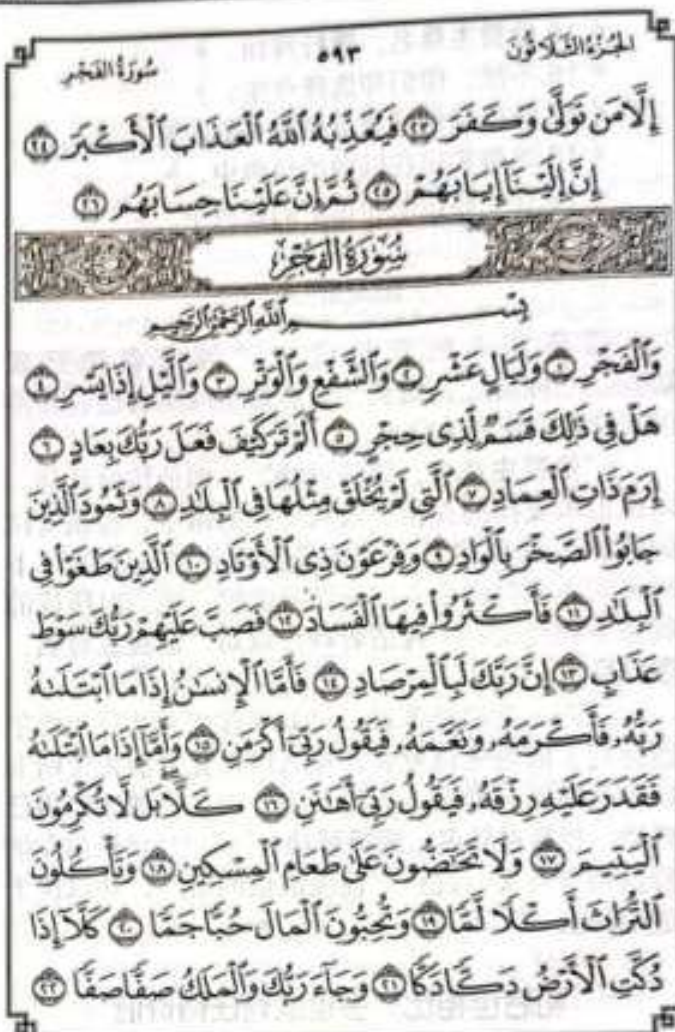 الجُزْءُ الثَّلَاثُونَ ٥٩٣ سُورَةُ الفَجْرِ
إِلَّا مَن تَوَلَّىٰ وَكَفَرَ ٢٣ فَيُعَذِّبُهُ ٱللَّهُ ٱلْعَذَابَ ٱلْأَكْبَرَ ٢٤
إِنَّ إِلَيْنَآ إِيَابَهُمْ ٢٥ ثُمَّ إِنَّ عَلَيْنَا حِسَابَهُم ٢٦
سُورَةُ الفَجْرِ
بِسْمِ ٱللَّهِ ٱلرَّحْمَٰنِ ٱلرَّحِيمِ
وَٱلْفَجْرِ ١ وَلَيَالٍ عَشْرٍ ٢ وَٱلشَّفْعِ وَٱلْوَتْرِ ٣ وَٱلَّيْلِ إِذَا يَسْرِ ٤
هَلْ فِى ذَٰلِكَ قَسَمٌ لِّذِى حِجْرٍ ٥ أَلَمْ تَرَ كَيْفَ فَعَلَ رَبُّكَ بِعَادٍ ٦
إِرَمَ ذَاتِ ٱلْعِمَادِ ٧ ٱلَّتِى لَمْ يُخْلَقْ مِثْلُهَا فِى ٱلْبِلَٰدِ ٨ وَثَمُودَ ٱلَّذِينَ
جَابُوا۟ ٱلصَّخْرَ بِٱلْوَادِ ٩ وَفِرْعَوْنَ ذِى ٱلْأَوْتَادِ ١٠ ٱلَّذِينَ طَغَوْا۟ فِى
ٱلْبِلَٰدِ ١١ فَأَكْثَرُوا۟ فِيهَا ٱلْفَسَادَ ١٢ فَصَبَّ عَلَيْهِمْ رَبُّكَ سَوْطَ
عَذَابٍ ١٣ إِنَّ رَبَّكَ لَبِٱلْمِرْصَادِ ١٤ فَأَمَّا ٱلْإِنسَٰنُ إِذَا مَا ٱبْتَلَىٰهُ
رَبُّهُۥ فَأَكْرَمَهُۥ وَنَعَّمَهُۥ فَيَقُولُ رَبِّىٓ أَكْرَمَنِ ١٥ وَأَمَّآ إِذَا مَا ٱبْتَلَىٰهُ
فَقَدَرَ عَلَيْهِ رِزْقَهُۥ فَيَقُولُ رَبِّىٓ أَهَٰنَنِ ١٦ كَلَّا ۖ بَل لَّا تُكْرِمُونَ
ٱلْيَتِيمَ ١٧ وَلَا تَحَٰٓضُّونَ عَلَىٰ طَعَامِ ٱلْمِسْكِينِ ١٨ وَتَأْكُلُونَ
ٱلتُّرَاثَ أَكْلًا لَّمًّا ١٩ وَتُحِبُّونَ ٱلْمَالَ حُبًّا جَمًّا ٢٠ كَلَّآ إِذَا
دُكَّتِ ٱلْأَرْضُ دَكًّا دَكًّا ٢١ وَجَآءَ رَبُّكَ وَٱلْمَلَكُ صَفًّا صَفًّا ٢٢